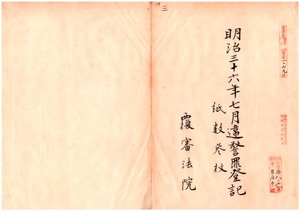 明治三十六年七月違警罪登記
紙数参枚
覆審法院
三